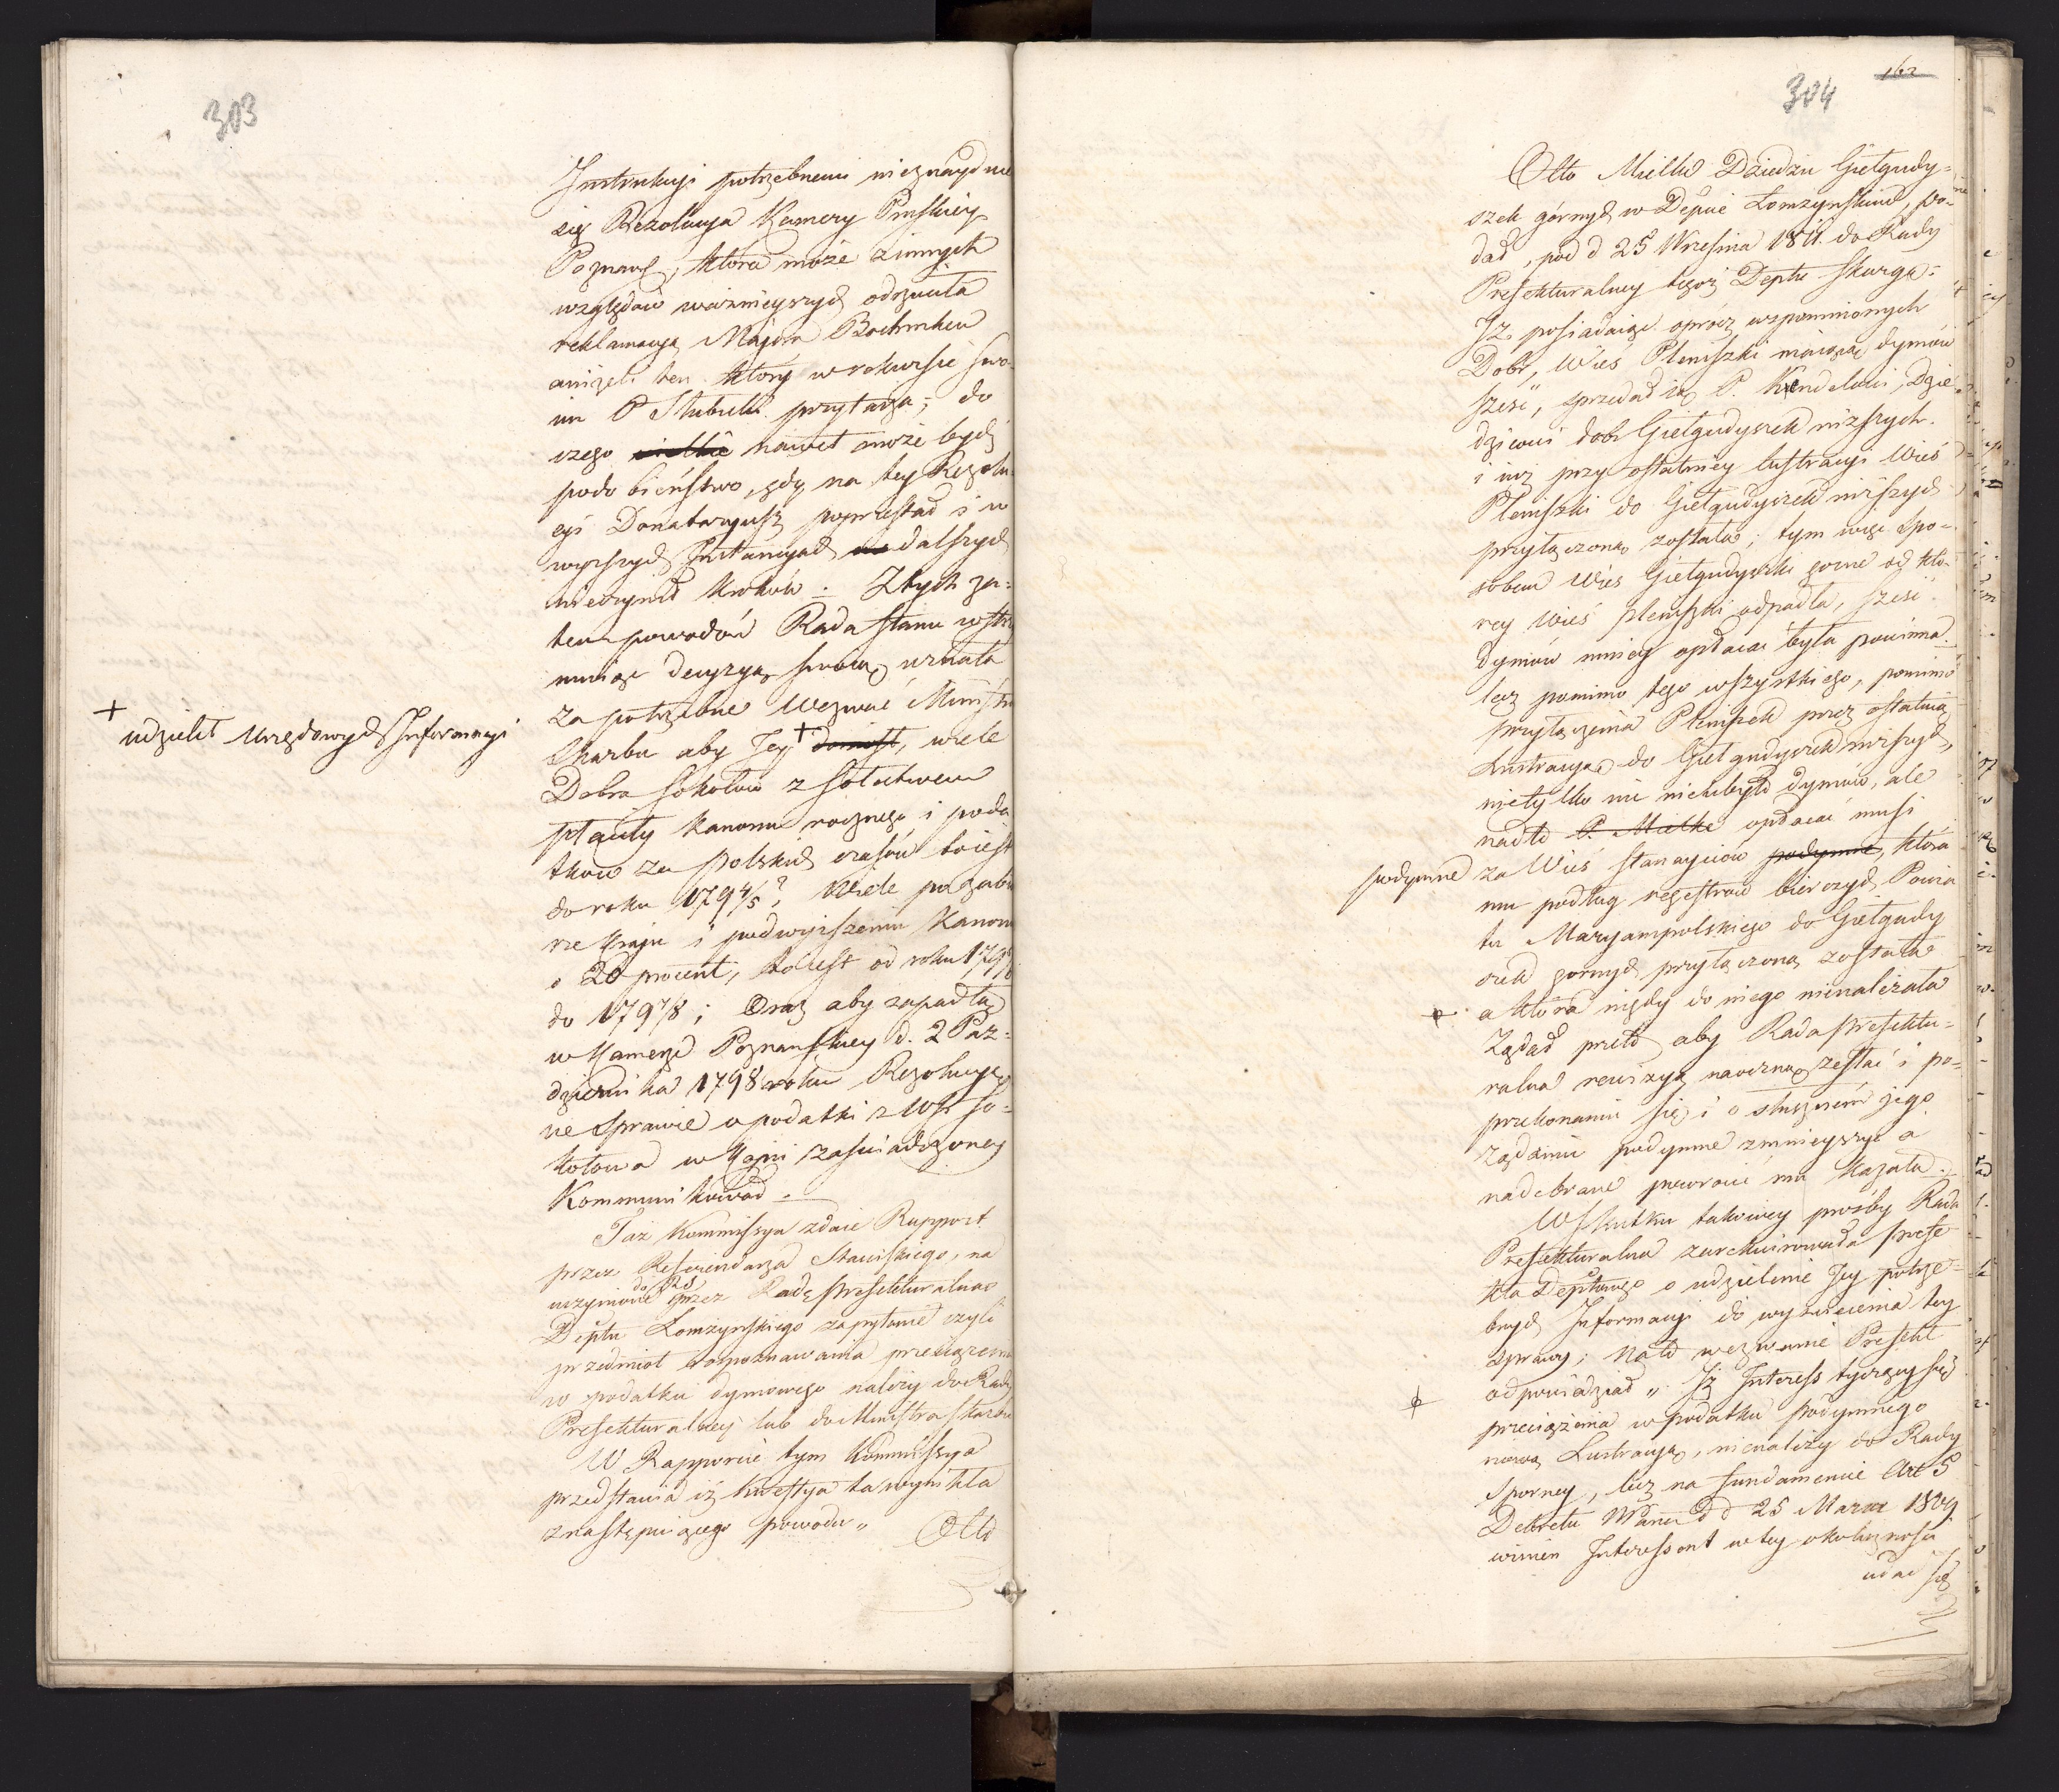 303
Instrukcyi potrzebnemi nieznayduie
się Rezolucya Kamery Pruskiey
Poznans, która może z innych
względów ważnieyszych odrzuciła
reklamacyą Majora Boehmken
aniżeli ten który w rekursie swo
im P. Stubicki przytacza; do
czego wielkie nawet może bydź
podobieństwo, gdy na tey Rezolu
cyi Donataryusz poprzestał i w
wyższych Instancyach dalszych
nieczynił kroków. Z tych za=
tem powodów Rada Stanu wstrzy
muiąc decyzyą swoią uznała
za potrzebne wezwać Ministra
Skarbu aby Jey + doniósł, wiele
+ udzielił urzędowych Informacyi
Dobra Sokołów z Sołectwem
płaciły kanonu rocznego i poda
tków za polskich czasów to iest
do roku 1794/5? Wiele po zabo
rze kraju i podwyższeniu Kanonu
o 20 procent, to iest od roku 179
do 1797/8; Oraz aby zapadłą
w Kamerze Poznańskiey d. 2 Paź=
dziernika 1798 roku Rezolucyą
we sprawie o podatki z Wsi So=
kołowa w kopii zaświadczoney
Kommunikował.
Taż Kommissya zdaie Rapport
przez Referendarza Stawiskiego, na
uczynione do RS przez Radę Prefekturalną
Deptu Łomżyńskiego zapytanie czyli
przedmiot rozpoznawania przeciążenia
w podatku dymowego należy do Rady
Prefekturalney lub do Ministra Skarbu
W Rapporcie tym Kommissya
przedstawia iż kwestya ta wynikła
z następuiącego powodu „
Otto
162
304
Otto Mielke Dziedzic Giełgudy=
szek górnych w Depcie Łomżyńskim, po=
dał, pod d 25 Września 1811. do Rady
Prefekturalney tegoż Deptu skargę:
Iż posiadaiąc oprócz wspomnionych
Dobr, Wieś Pleniszki maiącą dymów
sześć, sprzedał ią P. Kendelowi, Dzie
dzicowi dobr Giełgudyszek niższych.
i iuż przy ostatniey lustracyi Wieś
Pleniszki do Giełgudyszek niższych
przyłączoną została; tym więc spo=
sobem Wieś Giełgudyszki górne od któ=
rey Wieś Pleniszki odpadła, sześć
dymów mniey opłacać była powinna.
lecz pomimo tego wszystkiego, pomimo
przyłączenia Pleniszek przez ostatnią
Lustracyą do Giełgudyszek niższych,
nietylko mu nieubyło dymów, ale
nadto P. Mielke opłacać musi
podymne za Wieś Stanayciow podymne, która
mu podług regestrów bierczych Powia
tu Maryampolskiego do Giełgudy
szek gornych przyłączoną została
a która nigdy do niego nienależała
Żądał przeto aby Rada Prefektu=
ralna rewizyą naoczną zesłać i po
przekonaniu się i o słuszném jego
żądaniu podymne zmnieyszyć a
nadebrane powrócić mu kazała.
W skutku takowey prośby Rada
Prefekturalna zarekwirowała Prefe
kta Deptowego o udzielenie Jey potrze=
bnych Informacyi do wyświecenia tey
sprawy; na to wezwanie Prefekt
odpowiedział „ Iż Interess tyczący się
przeciążenia w podatku podymnego
nową Lustracyą, nienależy do Rady
Sporney, lecz na fundamencie Art 5
Dekretu d d 25 Marca 1809.
winien Interessent w tey okoliczności
udać się